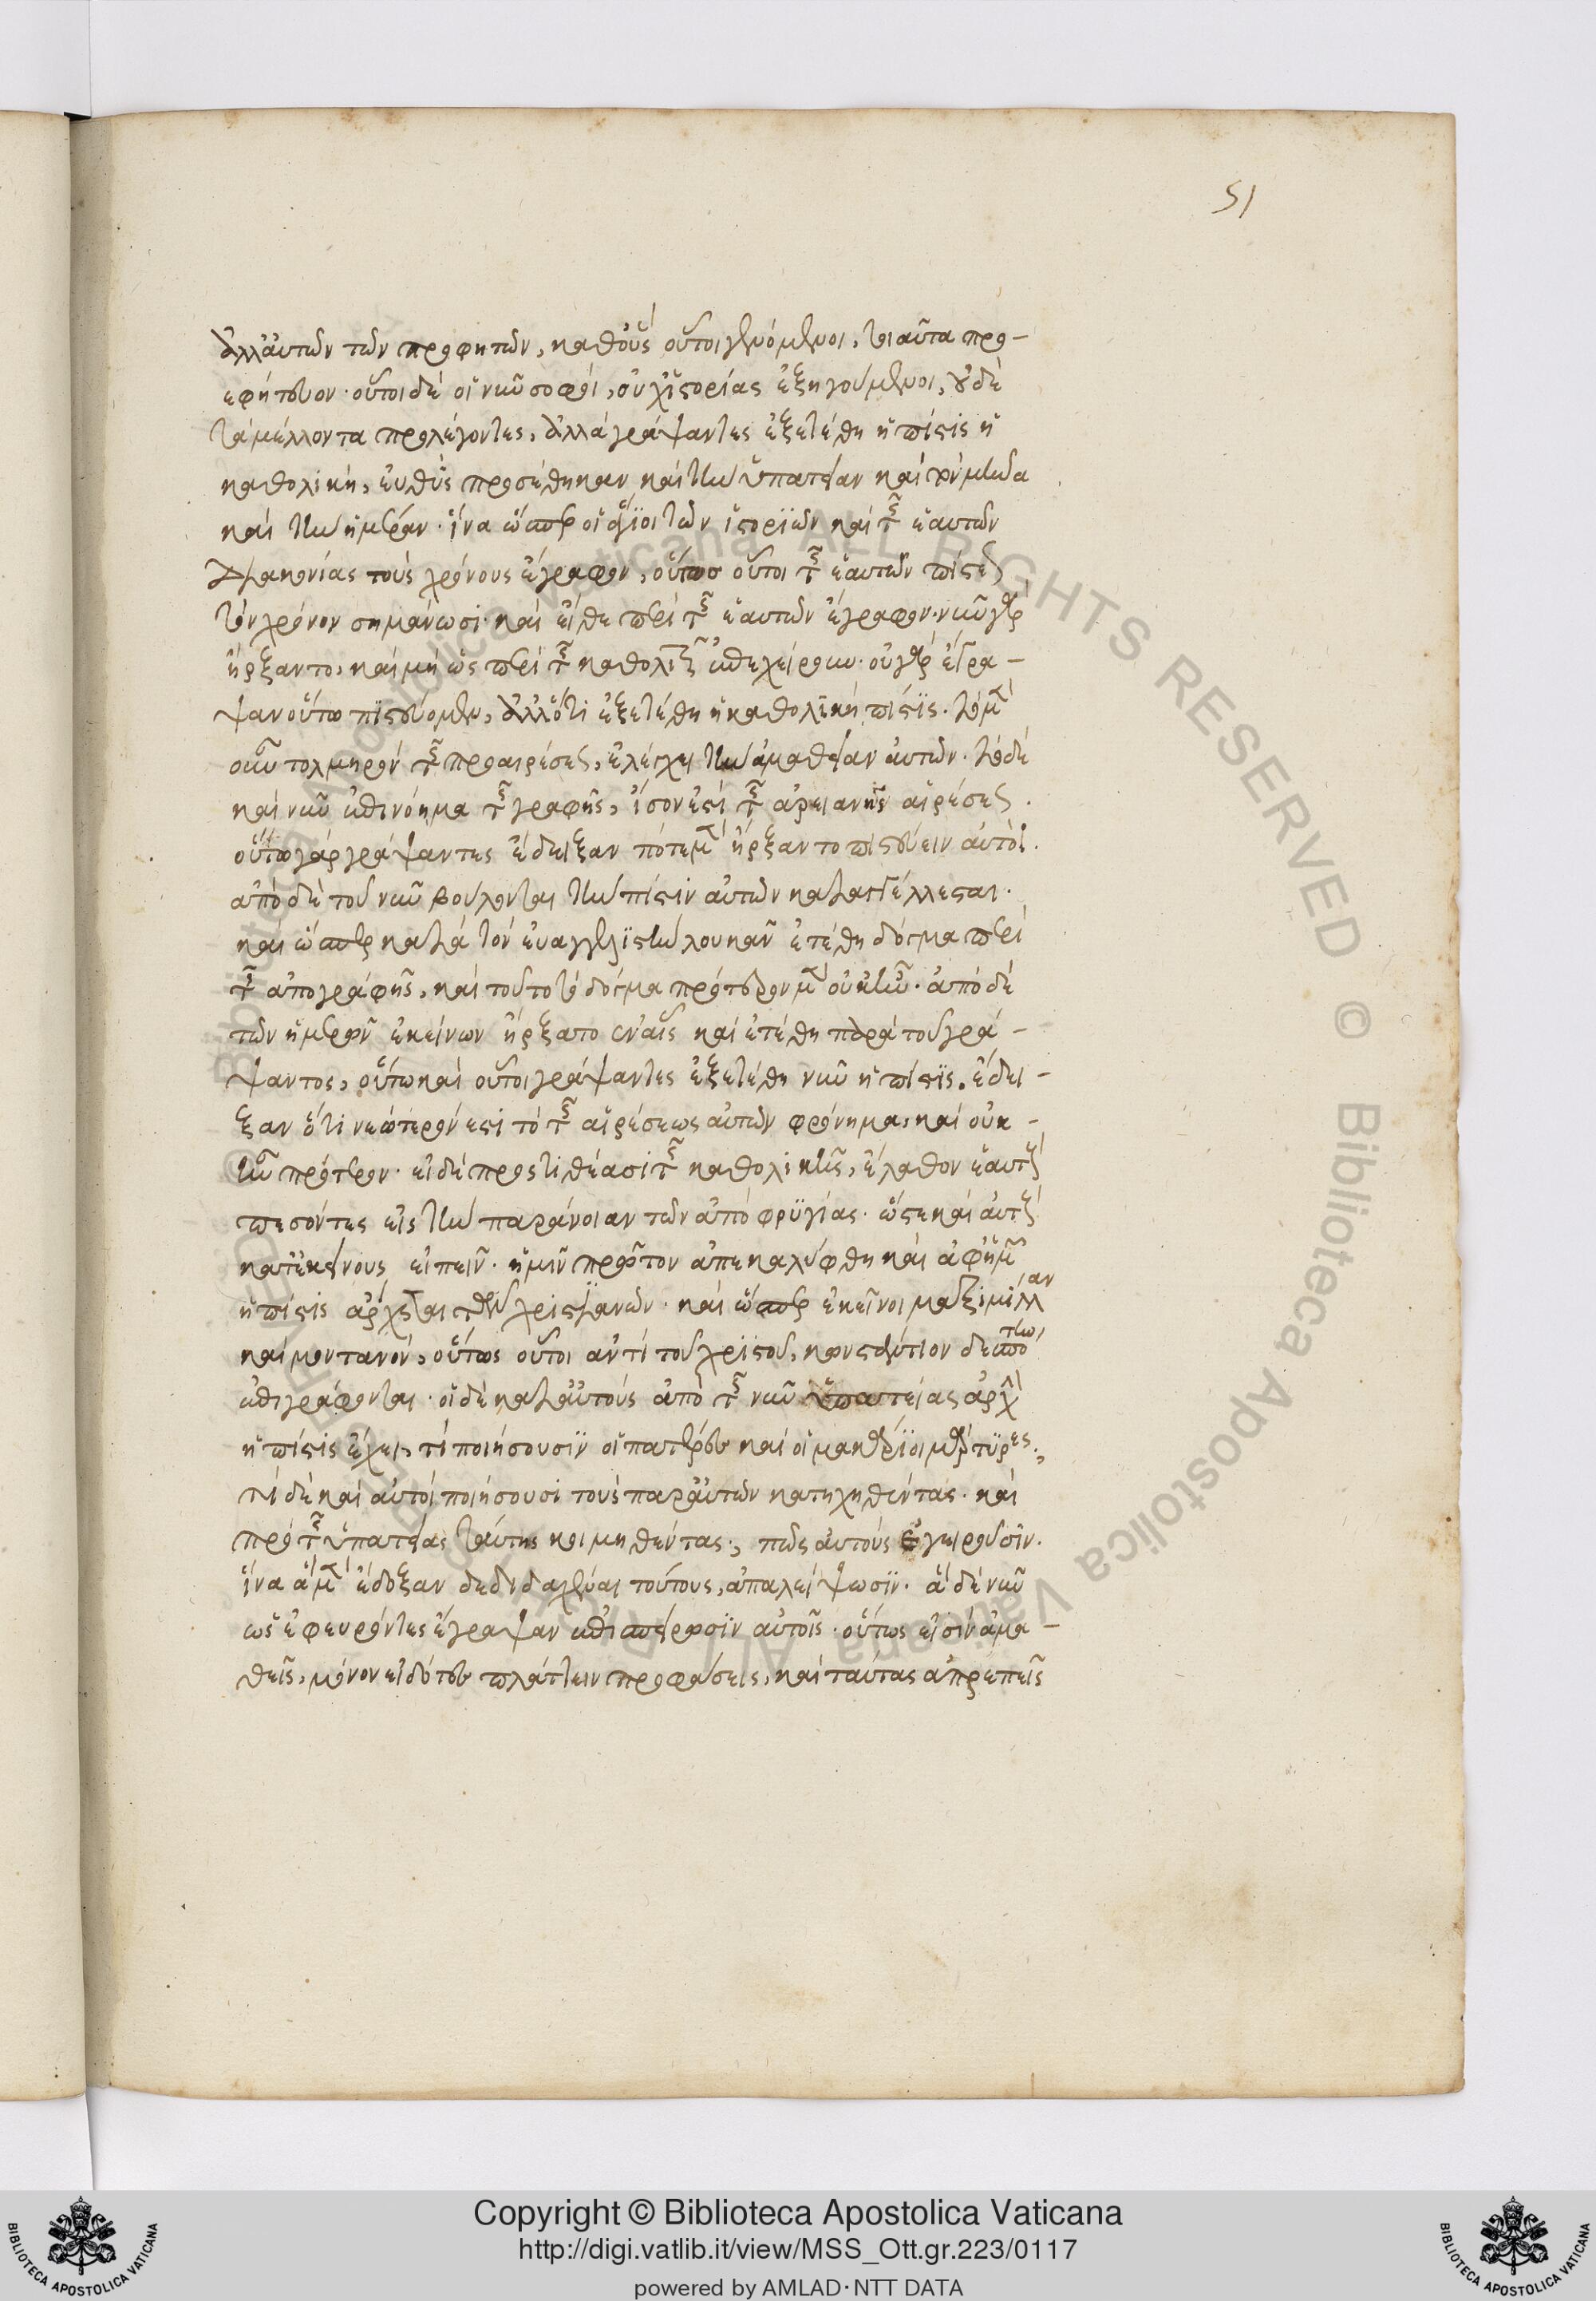 51
ἀλλ' αὐτῶν τῶν προφητῶν, καθ' οὓς οὗτοι γενόμενοι, ταῦτα προ-
εφήτευον· οὗτοι δὲ οἱ νῦν σοφοὶ, οὐχ ἱστορίας ἐξηγούμενοι, οὐδὲ
τὰ μέλλοντα προλέγοντες, ἀλλὰ γράψαντες ἐξετέθη ἡ πίστις ἡ
καθολικὴ, εὐθὺς προσέθηκαν καὶ τὴν ὑπατείαν καὶ τὸν μῆνα
καὶ τὴν ἡμέραν· ἵνα ὥσπερ οἱ ἅγιοι τῶν ἱστοριῶν καὶ τῆς ἑαυτῶν
διακονίας τοὺς χρόνους ἔγραφον, οὕτως οὗτοι τῆς ἑαυτῶν πίστεως
τὸν χρόνον σημάνωσι· καὶ εἴθε περὶ τῆς ἑαυτῶν ἔγραφον· νῦν γὰρ
ἤρξαντο, καὶ μὴ ὡς περὶ τῆς καθολικῆς ἐπεχείρουν· οὐ γὰρ ἔγρα-
ψαν οὕτω πιστεύομεν, ἀλλ' ὅτι ἐξετέθη ἡ καθολικὴ πίστις. τὸ μὲν
οὖν τολμηρὸν τῆς προαιρέσεως, ἐλέγχει τὴν ἀμαθείαν αὐτῶν· τὸ δὲ
καινὸν ἐπινόημα τῆς γραφῆς, ἴσον ἐστὶ τῆς ἀρειανῆς αἱρέσεως.
οὕτω γὰρ γράψαντες ἔδειξαν πότε μὲν ἤρξαντο πιστεύειν αὐτοὶ.
ἀπὸ δὲ τοῦ νῦν βούλονται τὴν πίστιν αὐτῶν καταγγέλλεσθαι.
καὶ ὥσπερ κατὰ τὸν εὐαγγελιστὴν λουκᾶν ἐτέθη δόγμα περὶ
τῆς ἀπογραφῆς, καὶ τοῦτο τὸ δόγμα πρότερον μὲν οὐκ ἦν· ἀπὸ δὲ
τῶν ἡμερῶν ἐκείνων ἤρξατο εἶναι καὶ ἐτέθη παρὰ τοῦ γρά-
ψαντος, οὕτω καὶ οὗτοι γράψαντες ἐξετέθη νῦν ἡ πίστις, ἔδει-
ξαν ὅτι νεώτερόν ἐστι τὸ τῆς αἱρέσεως αὐτῶν φρόνημα, καὶ οὐκ
ἦν πρότερον· εἰ δὲ προστιθέασι τῆς καθολικῆς, ἔλαθον ἑαυτοὺς
πεσόντες εἰς τὴν παράνοιαν τῶν ἀπὸ φρυγίας· ὥστε καὶ αὐτοὺς
κατ' ἐκείνους εἰπεῖν· ἡμῖν πρῶτον ἀπεκαλύφθη καὶ ἀφ' ἡμῶν
ἡ πίστις ἄρχεται τῶν χριστιανῶν· καὶ ὥσπερ ἐκεῖνοι μαξιμίλλαν
καὶ μοντανὸν, οὕτως οὗτοι ἀντὶ τοῦ χριστοῦ, κωνστάντιον δεσπότην
ἐπιγράφονται· εἰ δὲ κατ' αὐτοὺς ἀπὸ τῆς νῦν ὑπατείας ἀρχὴν
ἡ πίστις ἔχει, τί ποιήσουσιν οἱ πατέρες καὶ οἱ μακάριοι μάρτυρες;
τί δὲ καὶ αὐτοὶ ποιήσουσι τοὺς παρ' αὐτῶν κατηχηθέντας· καὶ
πρὸ τῆς ὑπατείας ταύτης κοιμηθέντας; πῶς αὐτοὺς ἐγειροῦσιν.
ἵνα ἃ μὲν ἔδοξαν δεδιδαχέναι τούτους, ἀπαλείψωσιν· ἃ δὲ νῦν
ὡς ἐφευρόντες ἔγραψαν ἐπισπείρωσιν αὐτοῖς· οὕτως εἰσὶν ἀμα-
θεῖς, μόνον εἰδότες πλάττειν προφάσεις, καὶ ταύτας ἀπρεπεῖς
Copyright © Biblioteca Apostolica Vaticana
http://digi.vatlib.it/view/MSS_Ott.gr.223/0117
powered by AMLAD·NTT DATA